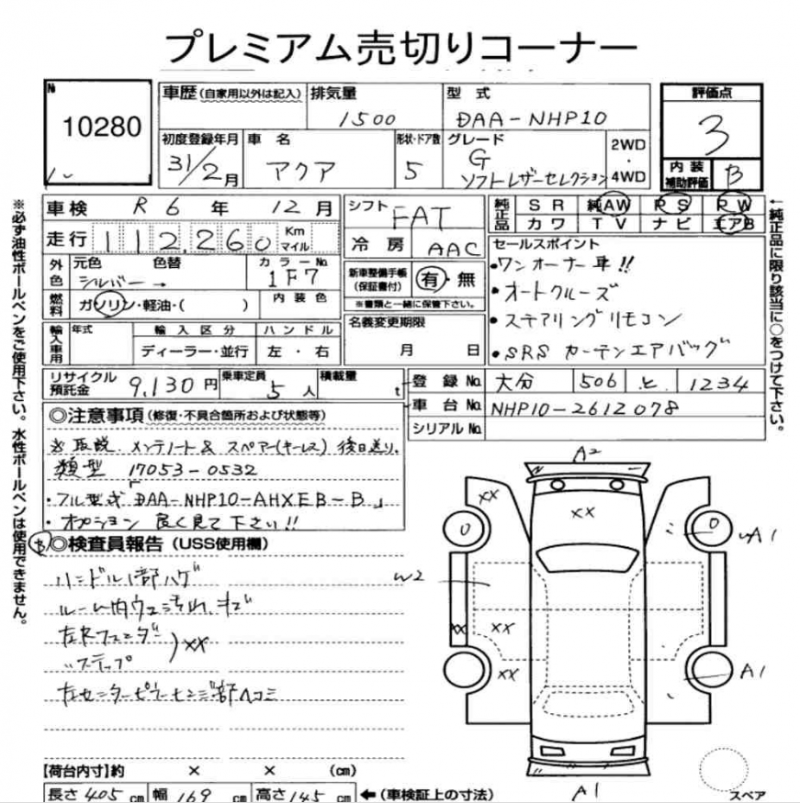 プレミアム売切りコーナー
№ 10280
車歴 (自家用以外は記入) 排気量 1500 型式 DAA-NHP10 評価点 3
初度登録年月 31/2月 車名 アクア 形状・ドア数 5 グレード G ソフトレザーセレクション 2WD・4WD 内装補助評価 B
車検 R6年12月 シフト FAT 純正品 SR 純AW PS PW
走行 112,260 Km マイル 冷房 AAC カワ TV ナビ エアB
外色 元色 シルバー→ 色替 カラーNo. 1F7 新車整備手帳(保証書付) 有・無 ※書類と一緒に保管下さい。
燃料 ガソリン・軽油・( ) 内装色
セールスポイント
・ワンオーナー車!!
・オートクルーズ
・ステアリングリモコン
・SRSカーテンエアバッグ
輸入車用 年式 輸入区分 ハンドル 名義変更期限
ディーラー・並行 左・右 月 日
リサイクル預託金 9,130円 乗車定員 5人 積載量 t
登録No. 大分 506 と 1234
車台No. NHP10-2612078
シリアルNo.
◎注意事項 (修復・不具合箇所および状態等)
※取説、メンテノート& スペアー(キーレス)後日送り。
類型 17053-0532
・フル型式「DAA-NHP10-AHXEB-B」
・オプション 良く見て下さい!!
◎検査員報告 (USS使用欄)
ハンドル1部ハゲ
ルーム内ウエ汚れ、キズ
左Rフェンダー
〃ステップ
)XX
左センターピラー
A2
XX
XX
0
0
A1
W2
XX
XX
XX
A1
A1
【荷台内寸】約 × × (cm)
長さ 405 cm 幅 169 cm 高さ 145 cm ←(車検証上の寸法)
スペア
※必ず油性ボールペンをご使用下さい。水性ボールペンは使用できません。
←純正品に限り該当に○をつけて下さい。